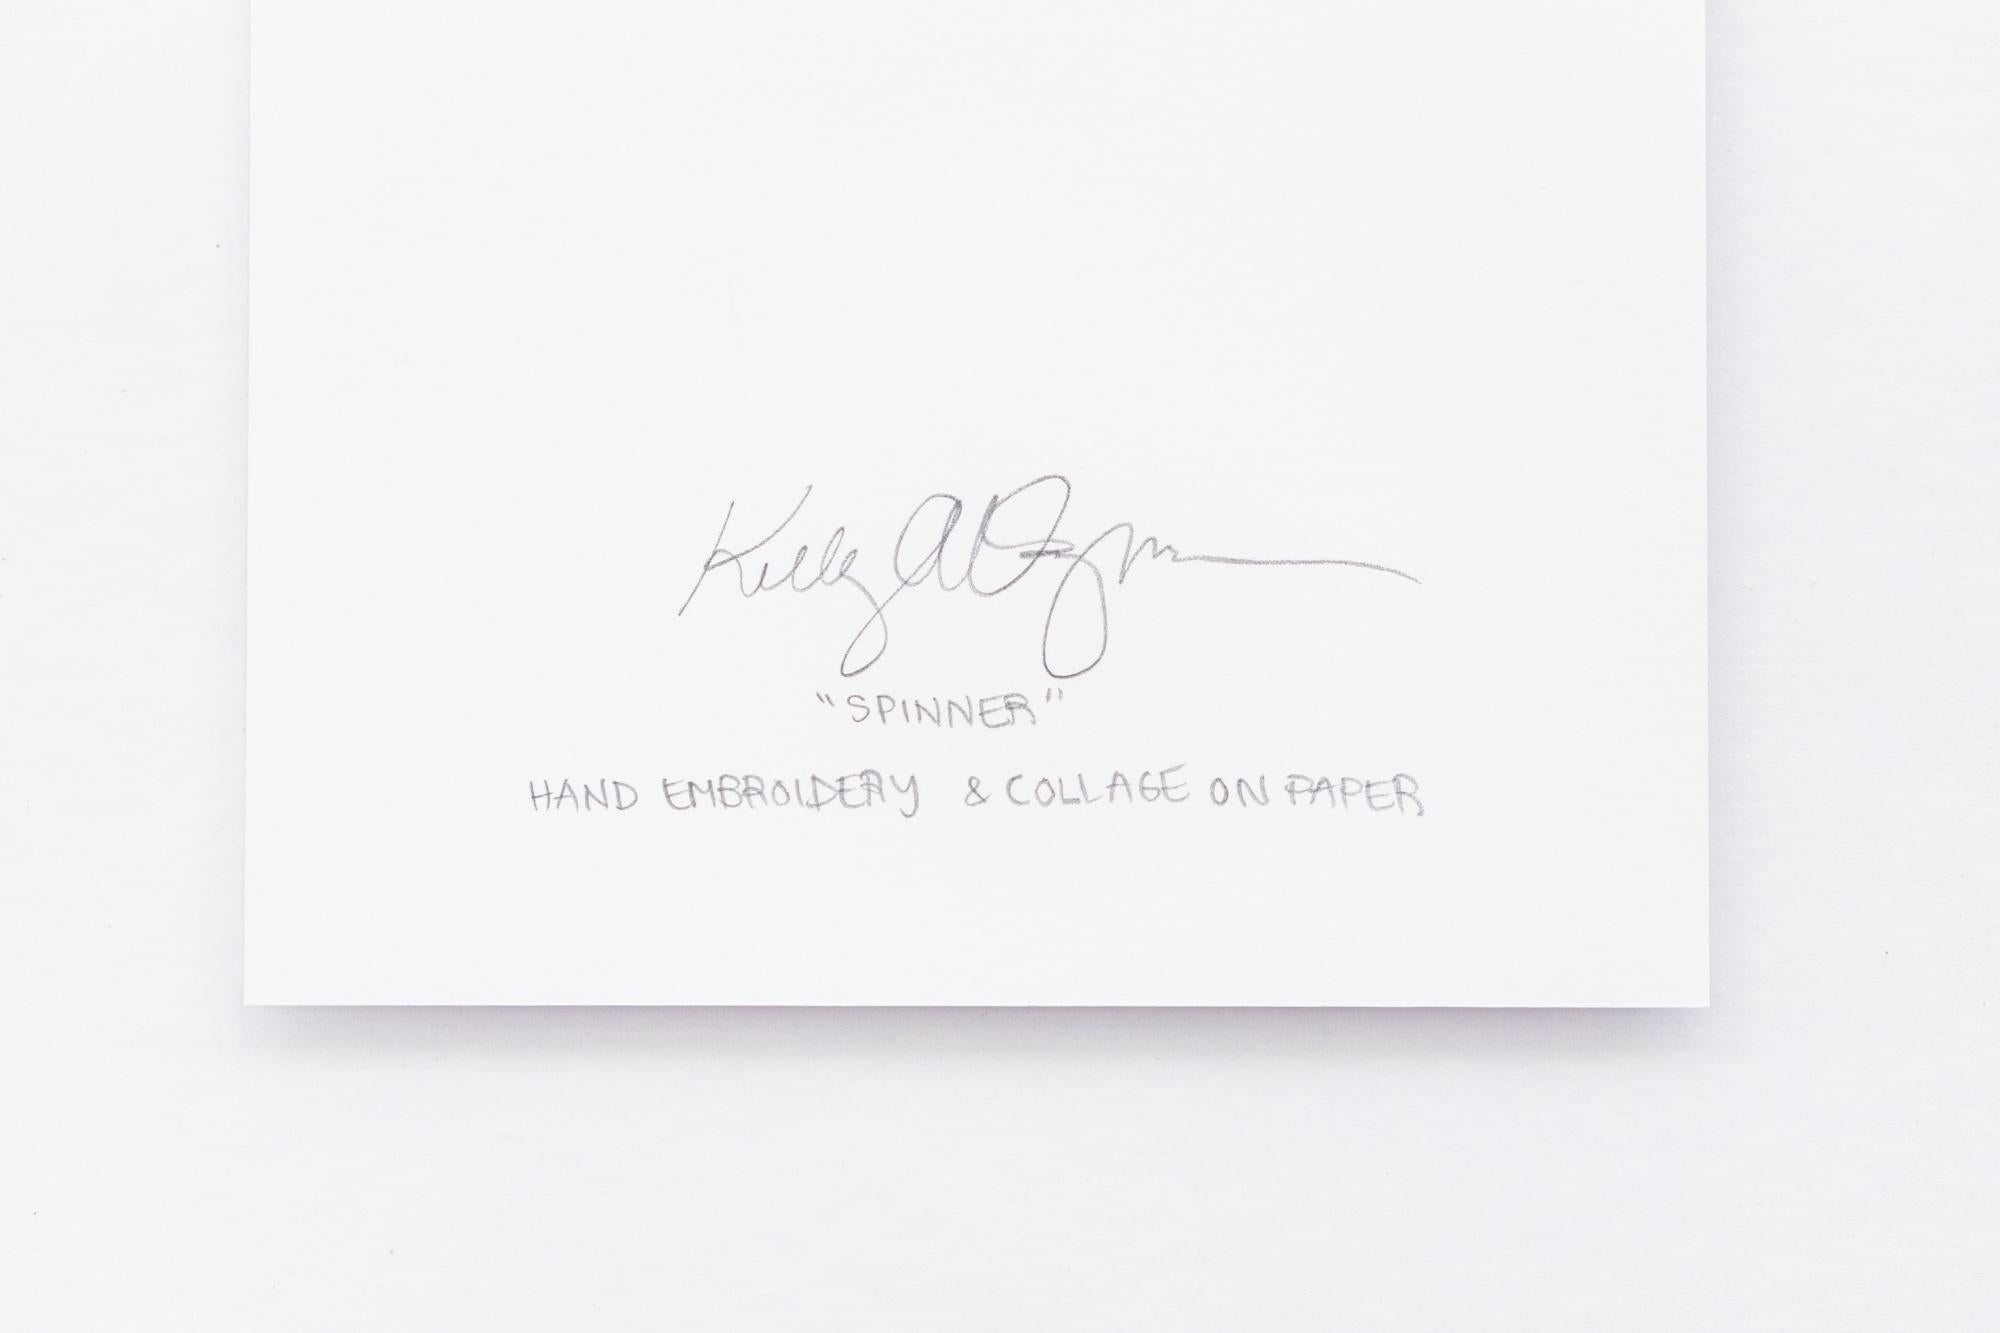 Kelly
"SPINNER"
HAND EMBROIDERY & COLLAGE ON PAPER